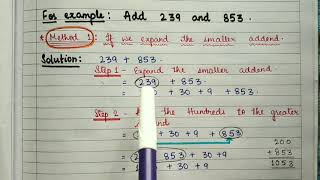 For example: Add 239 and 853.
* Method 1: If we expand the smaller addend.
Solution: 239 + 853.
Step 1 - Expand the smaller addend.
= 239 + 853.
= 30 + 9 + 853.
Step 2 - the Hundreds to the greater
+ 30 + 9 + 853
= 853 + 30 + 9
= + 30 + 9
200
+ 853
1053